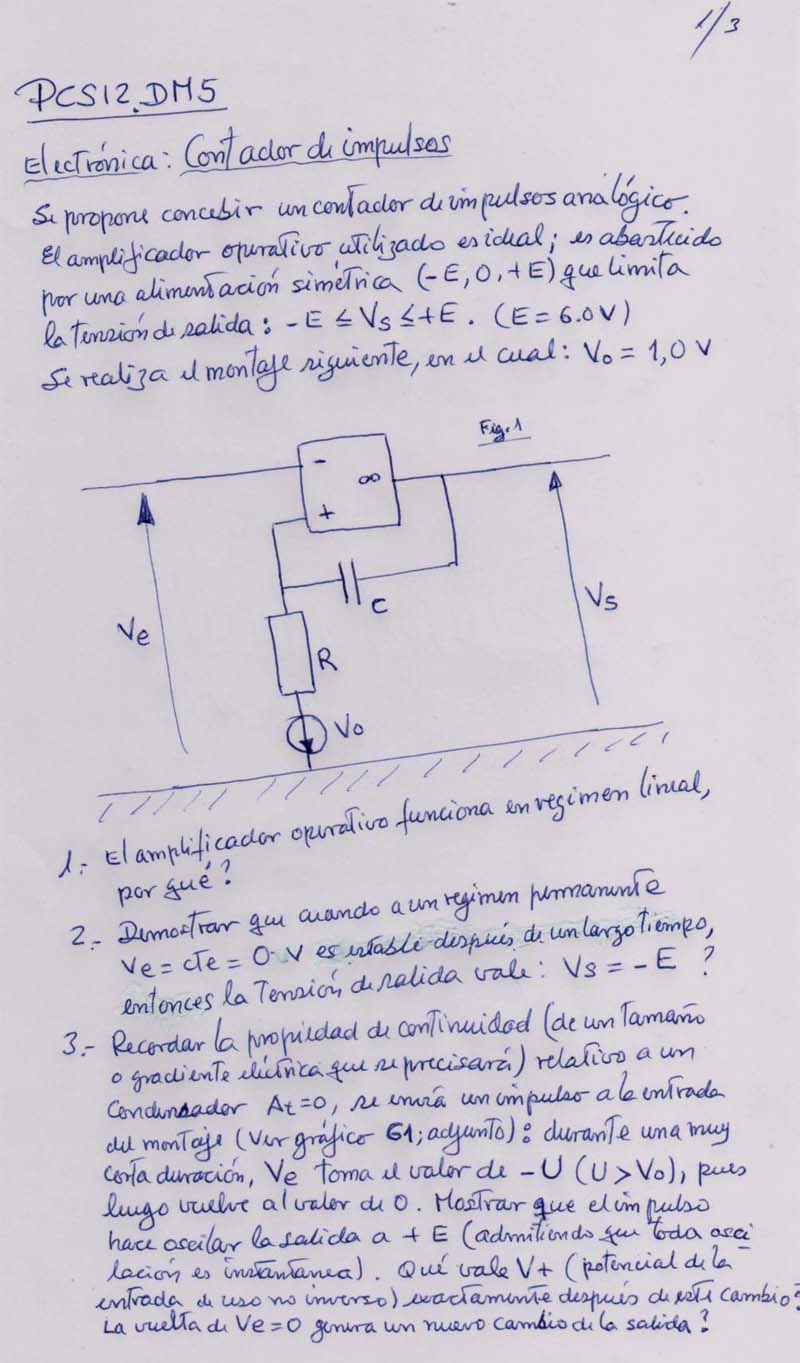 1/3
PCS12.DM5
Electrónica: Contador de impulsos
Se propone concebir un contador de impulsos analógico.
El amplificador operativo utilizado es ideal; es abastecido
por una alimentación simétrica (-E, 0, +E) que limita
la tensión de salida: -E ≤ Vs ≤ +E. (E = 6.0 V)
Se realiza el montaje siguiente, en el cual: Vo = 1,0 V
Fig. 1
-
∞
+
C
Ve
Vs
R
Vo
1.- El amplificador operativo funciona en regimen lineal,
por qué?
2.- Demostrar que cuando a un regimen permanente
Ve = cTe = 0 V es estable después de un largo tiempo,
entonces la Tensión de salida vale: Vs = -E ?
3.- Recordar la propiedad de continuidad (de un tamaño
o gradiente eléctrica que se precisará) relativo a un
Condensador At=0, se envía un impulso a la entrada
del montaje (Ver gráfico G1; adjunto): durante una muy
corta duración, Ve toma el valor de -U (U > Vo), pues
luego vuelve al valor de 0. Mostrar que el impulso
hace oscilar la salida a +E (admitiendo que toda osci
lación es instantánea). Qué vale V+ (potencial de la
entrada de uso no inverso) exactamente después de este cambio?
La vuelta de Ve=0 genera un nuevo cambio de la salida?